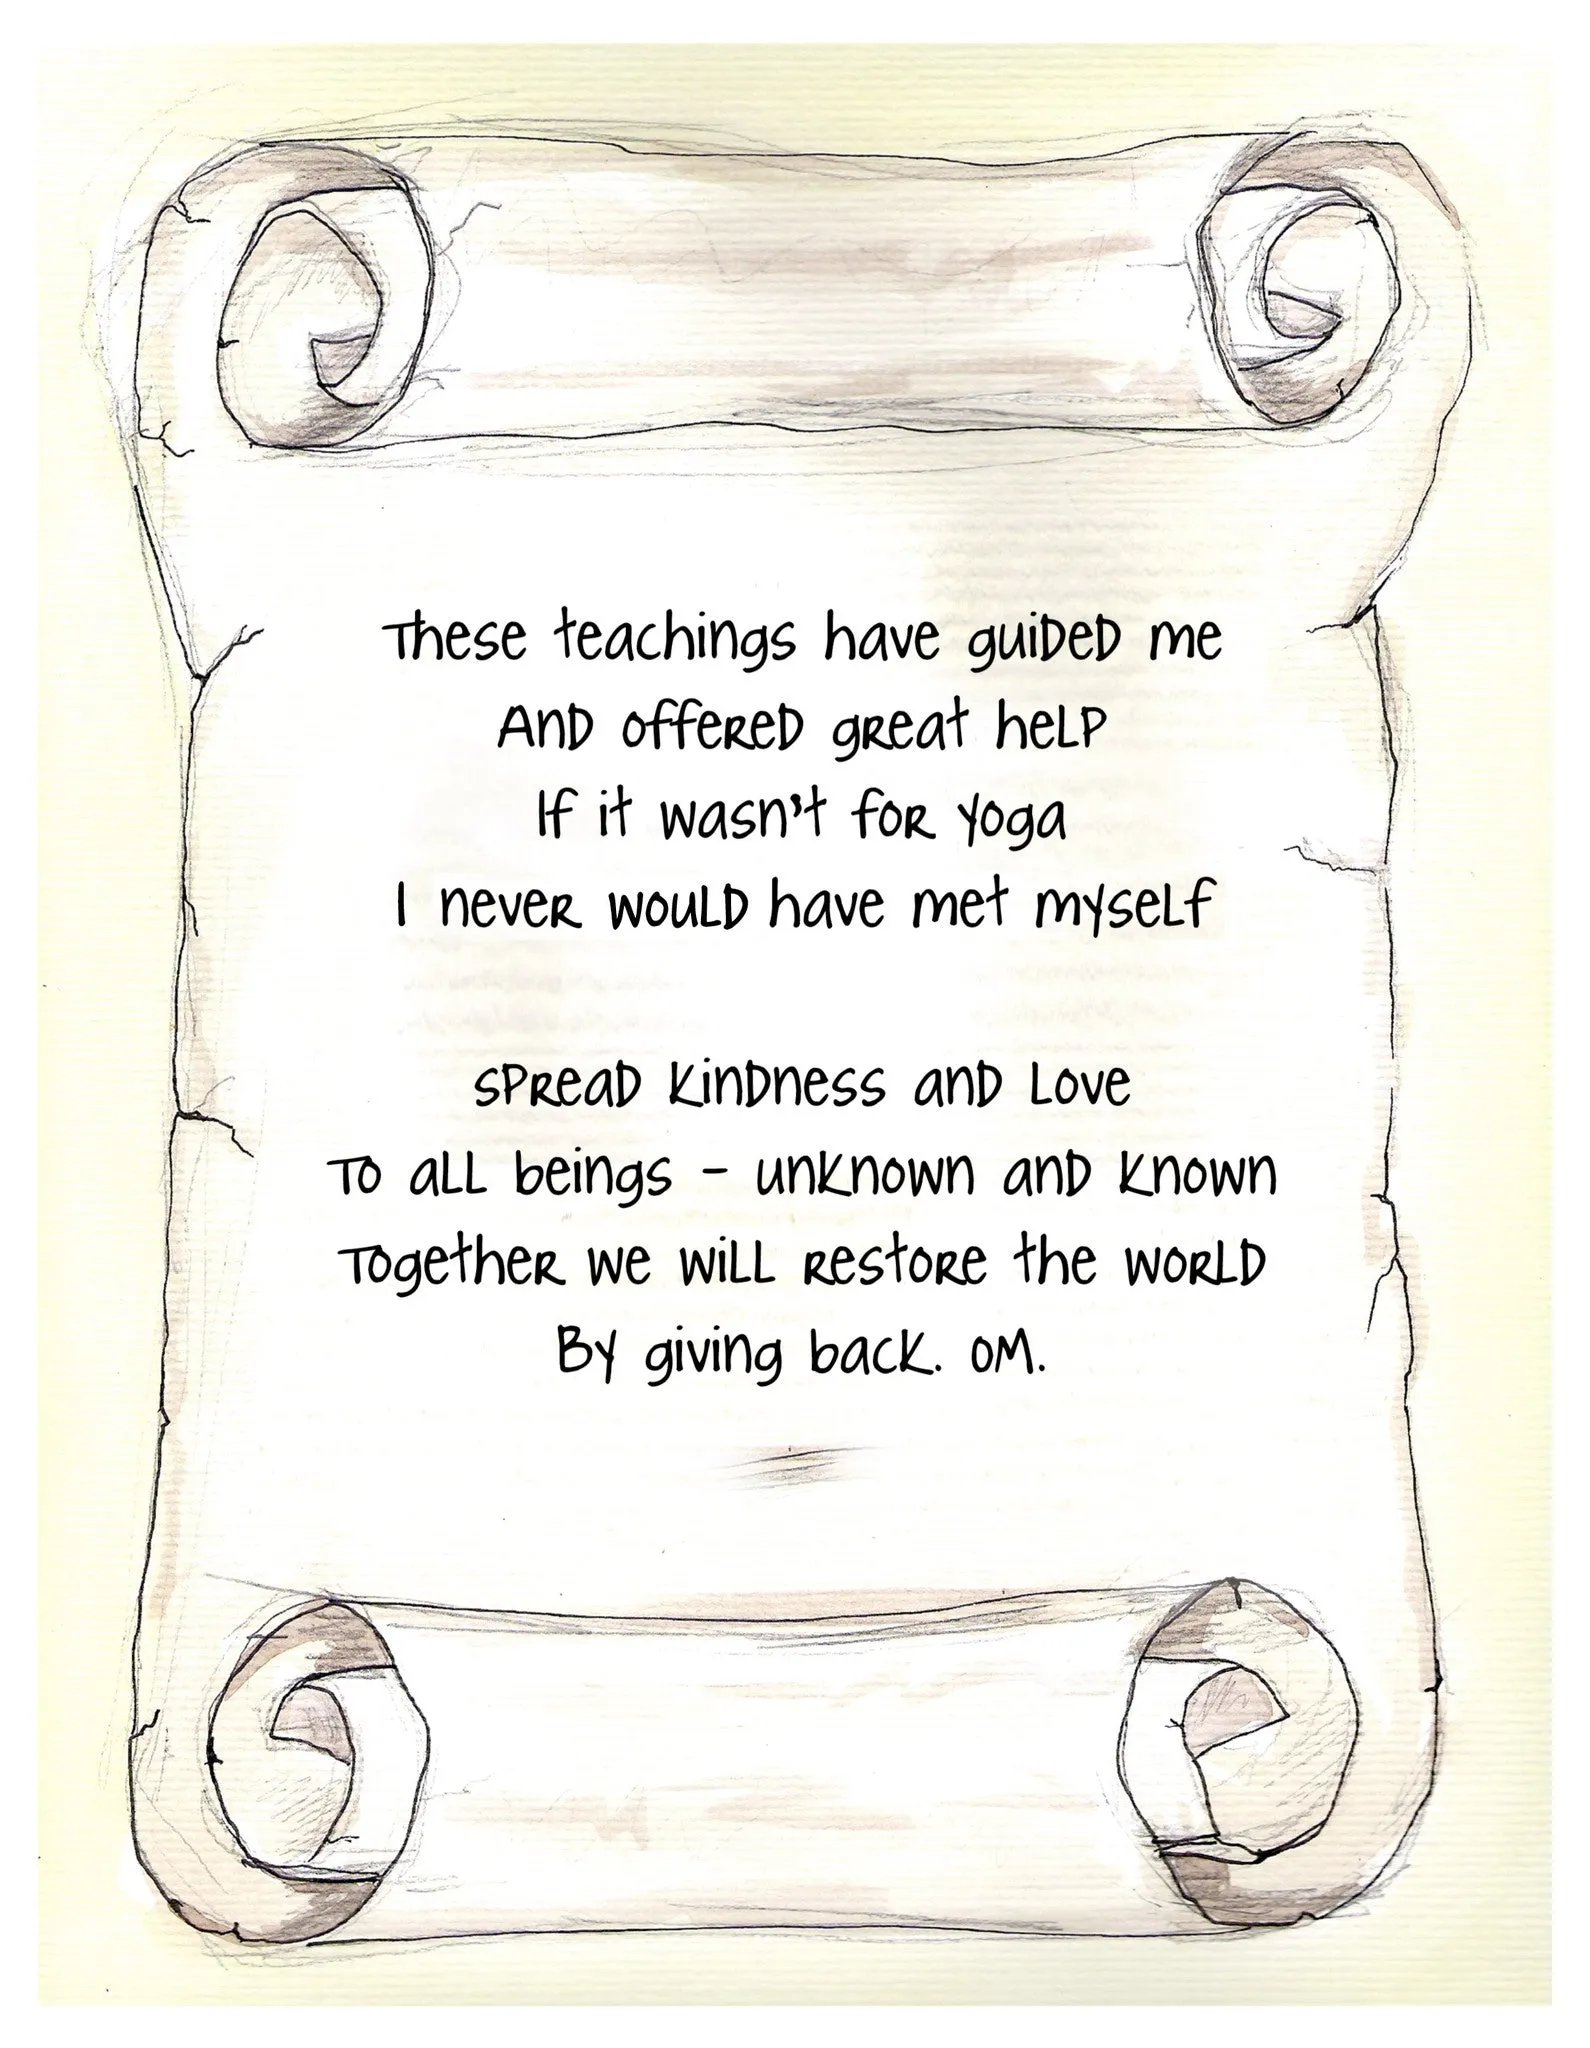 These teachings have guided me
And offered great help
If it wasn't for yoga
I never would have met myself
Spread kindness and love
To all beings - unknown and known
Together we will restore the world
By giving back. OM.